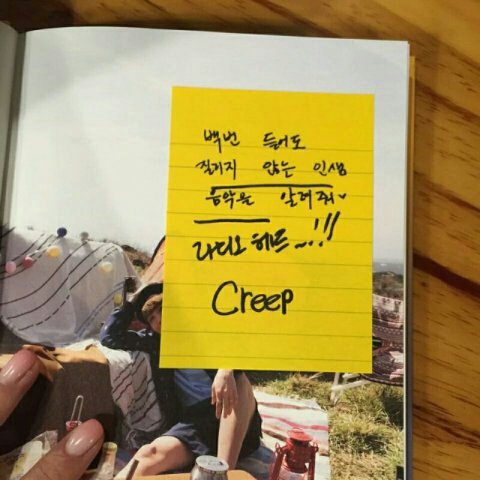 백번 들어도
질리지 않는 인생
음악을 알려줘♥
라디오 헤드~!!!
Creep